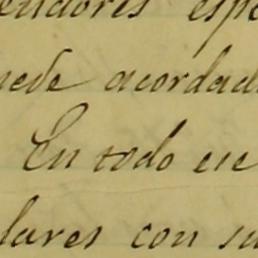 endores esp
uede acordad
En todo cu
lares con su